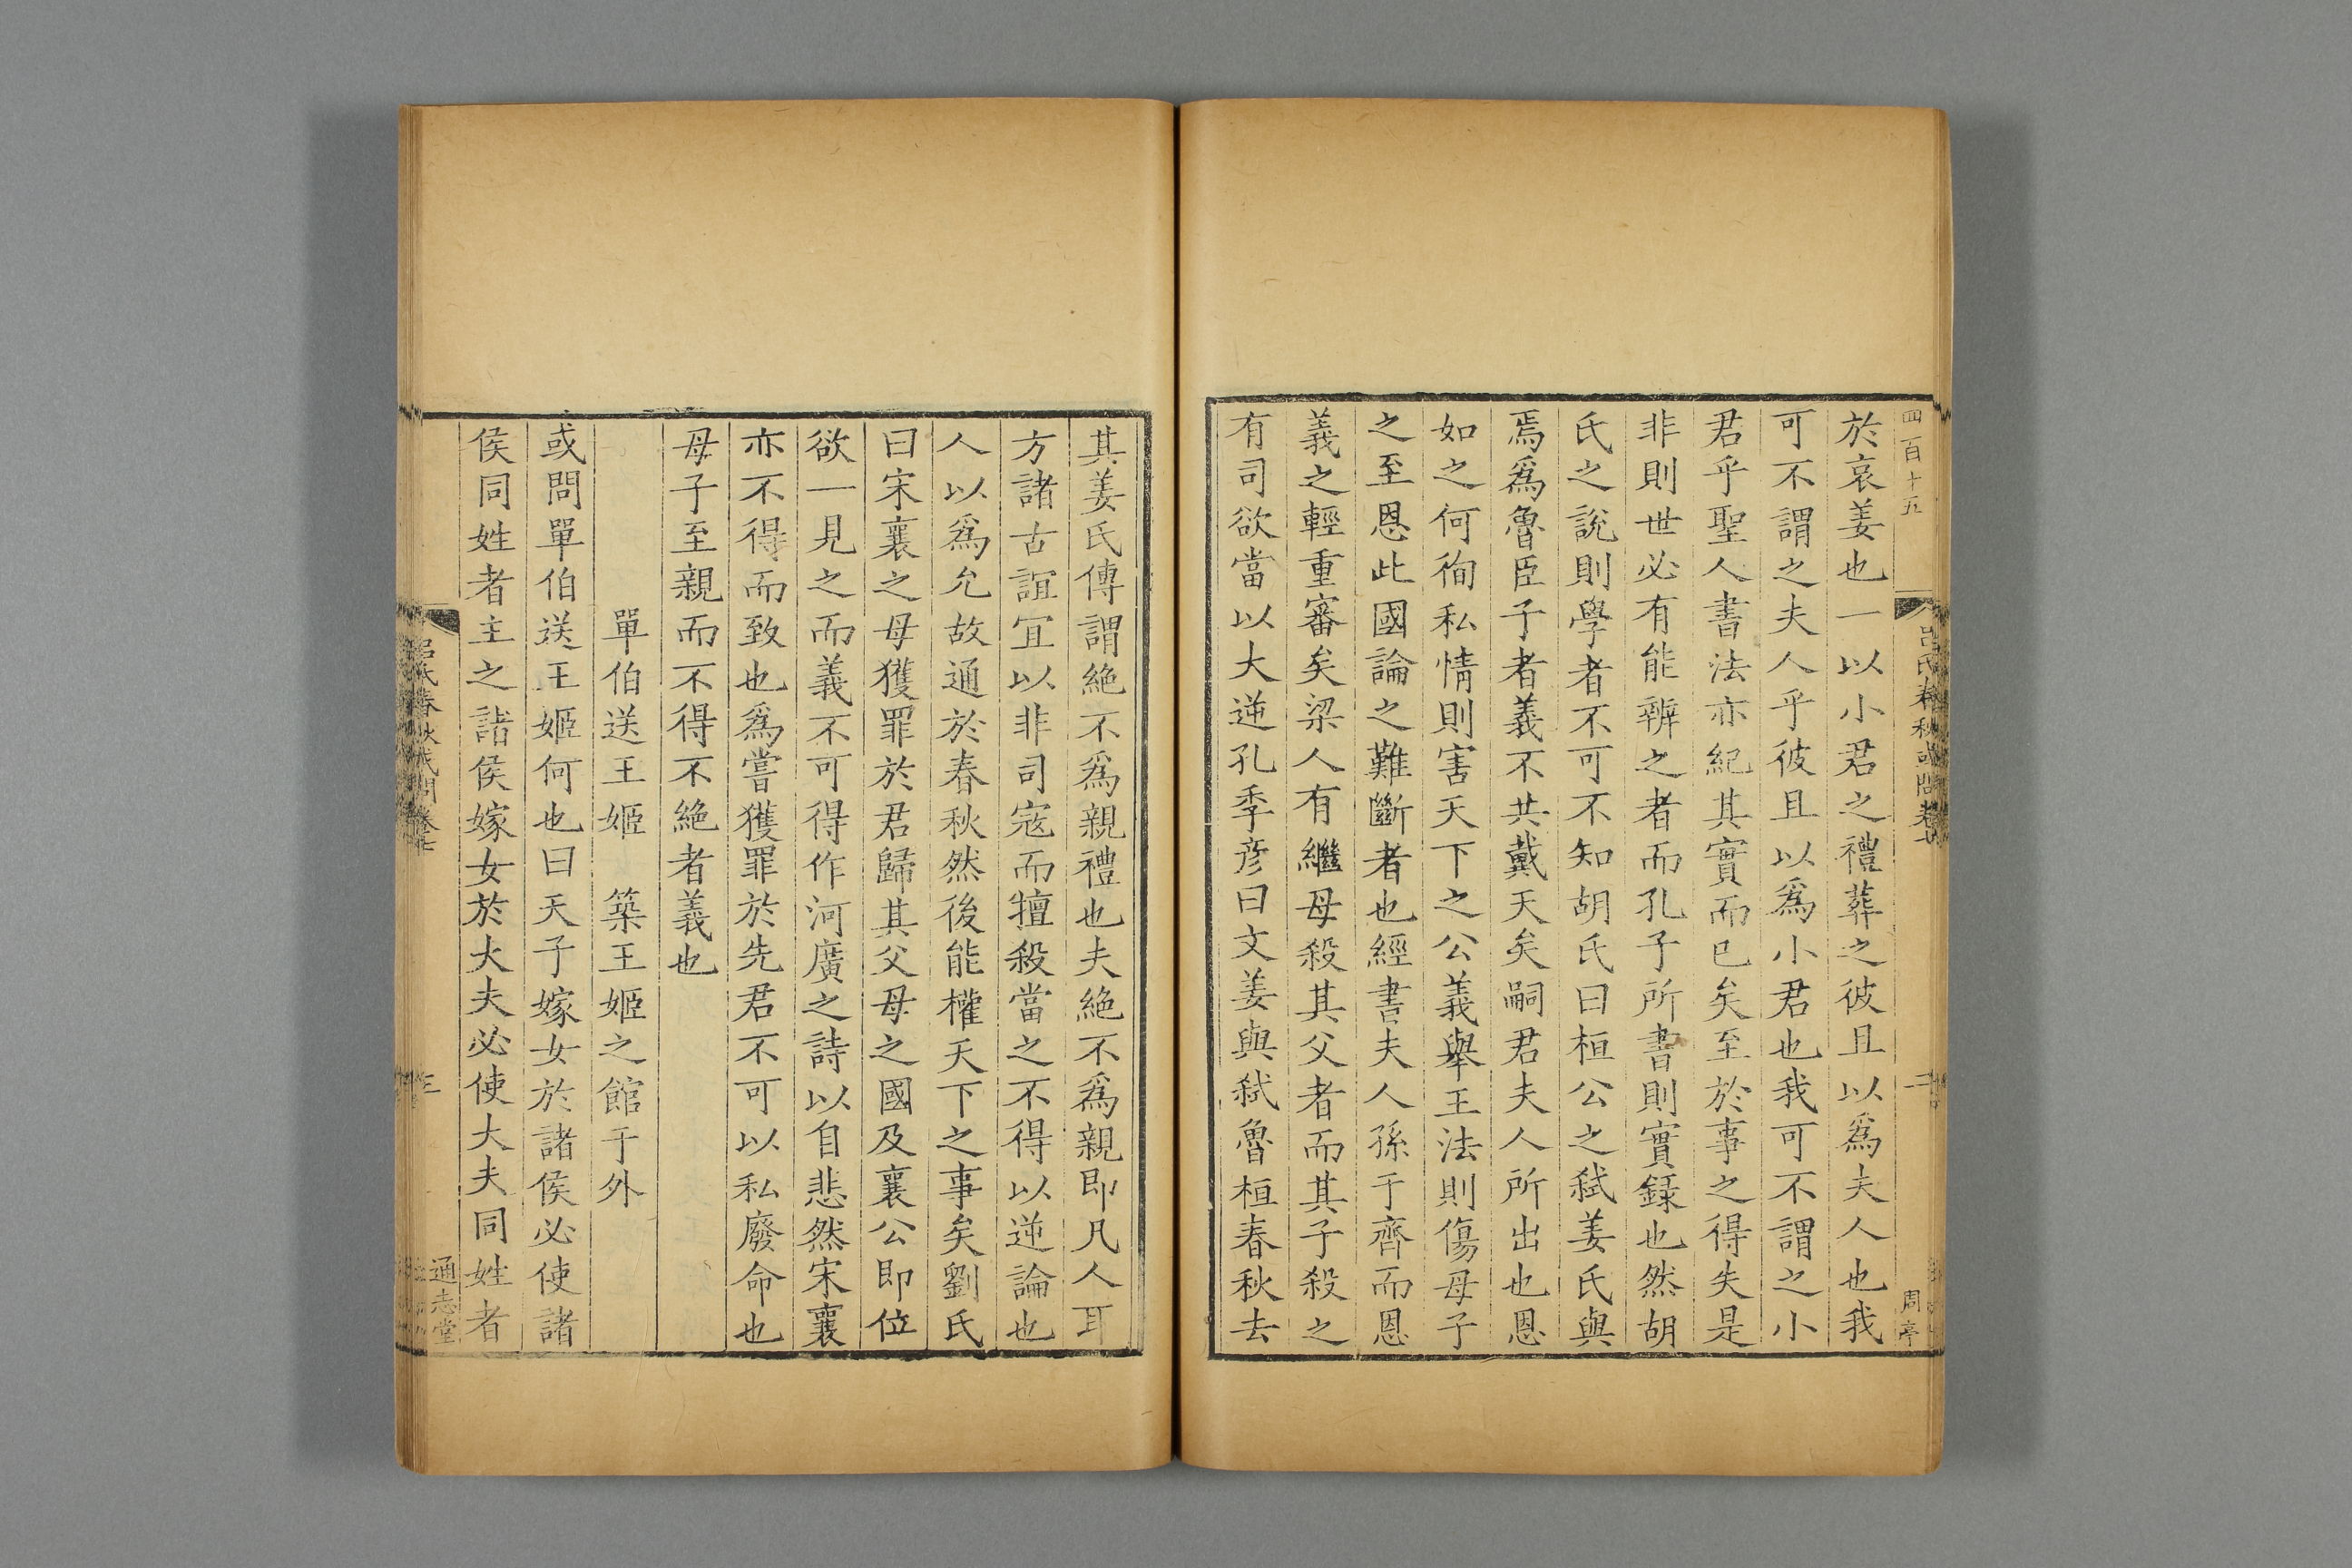 四百十五
吕氏春秋或問卷七
二
周亭
於哀姜也一以小君之禮葬之彼且以爲夫人也我
可不謂之夫人乎彼且以爲小君也我可不謂之小
君乎聖人書法亦紀其實而已矣至於事之得失是
非則世必有能辨之者而孔子所書則實録也然胡
氏之說則學者不可不知胡氏曰桓公之弑姜氏與
焉爲魯臣子者義不共戴天矣嗣君夫人所出也恩
如之何徇私情則害天下之公義舉王法則傷母子
之至恩此國論之難斷者也經書夫人孫于齊而恩
義之輕重審矣梁人有繼母殺其父者而其子殺之
有司欲當以大逆孔季彦曰文姜與弑魯桓春秋去
其姜氏傳謂絶不爲親禮也夫絶不爲親即凡人耳
方諸古誼宜以非司寇而擅殺當之不得以逆論也
人以爲允故通於春秋然後能權天下之事矣劉氏
曰宋襄之母獲罪於君歸其父母之國及襄公即位
欲一見之而義不可得作河廣之詩以自悲然宋襄
亦不得而致也爲嘗獲罪於先君不可以私廢命也
母子至親而不得不絶者義也
單伯送王姬　築王姬之館于外
或問單伯送王姬何也曰天子嫁女於諸侯必使諸
侯同姓者主之諸侯嫁女於大夫必使大夫同姓者
吕氏春秋或問卷七
三
通志堂